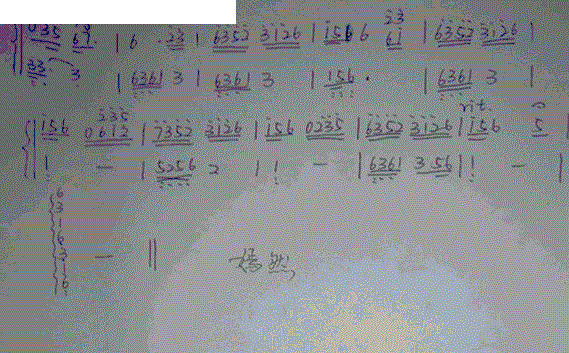 035 67· | 6 · 23 | 6352 3126 | 156 6 23 61 | 6352 3126 |
33 3 | 6361 3 | 6361 3 | 156 · | 6361 3 |
rit.
156 235 0612 | 7352 3126 | 156 0235 | 6352 3126 | 156 5 |
1 — | 5256 2 | 1 — | 6361 356 | 1 — |
6
3
1
6
3 — ‖
1
6
然